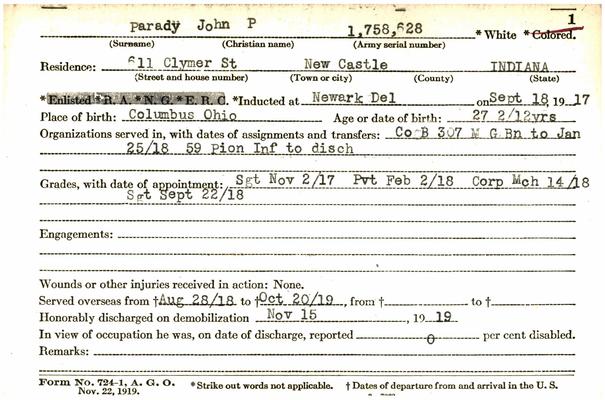 1
Parady John P 1,758,628 * White * Colored.
(Surname) (Christian name) (Army serial number)
Residence: 611 Clymer St New Castle INDIANA
(Street and house number) (Town or city) (County) (State)
* Enlisted * R. A. * N. G. * E. R. C. * Inducted at Newark Del on Sept 18, 1917
Place of birth: Columbus Ohio Age or date of birth: 27 2/12yrs
Organizations served in, with dates of assignments and transfers: Co B 307 M G Bn to Jan
25/18 59 Pion Inf to disch
Grades, with date of appointment: Sgt Nov 2/17 Pvt Feb 2/18 Corp Mch 14/18
Sgt Sept 22/18
Engagements:
Wounds or other injuries received in action: None.
Served overseas from † Aug 28/18 to † Oct 20/19, from † to †
Honorably discharged on demobilization Nov 15, 1919
In view of occupation he was, on date of discharge, reported 0 per cent disabled.
Remarks:
Form No. 724-1, A. G. O. * Strike out words not applicable. † Dates of departure from and arrival in the U. S.
Nov. 22, 1919.